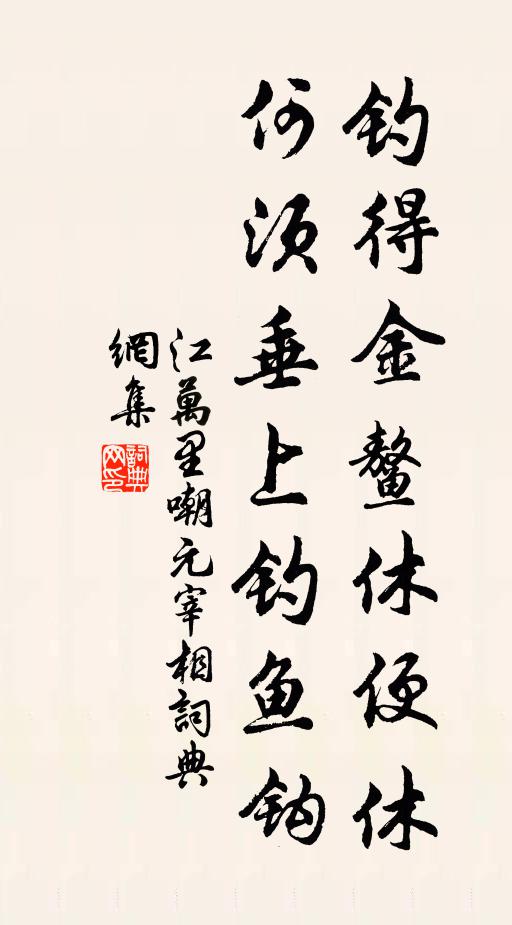 钓得金鳌休便休
何须垂上钓鱼钩
江萬里嘲元宰相詞典
網集
詞典网印